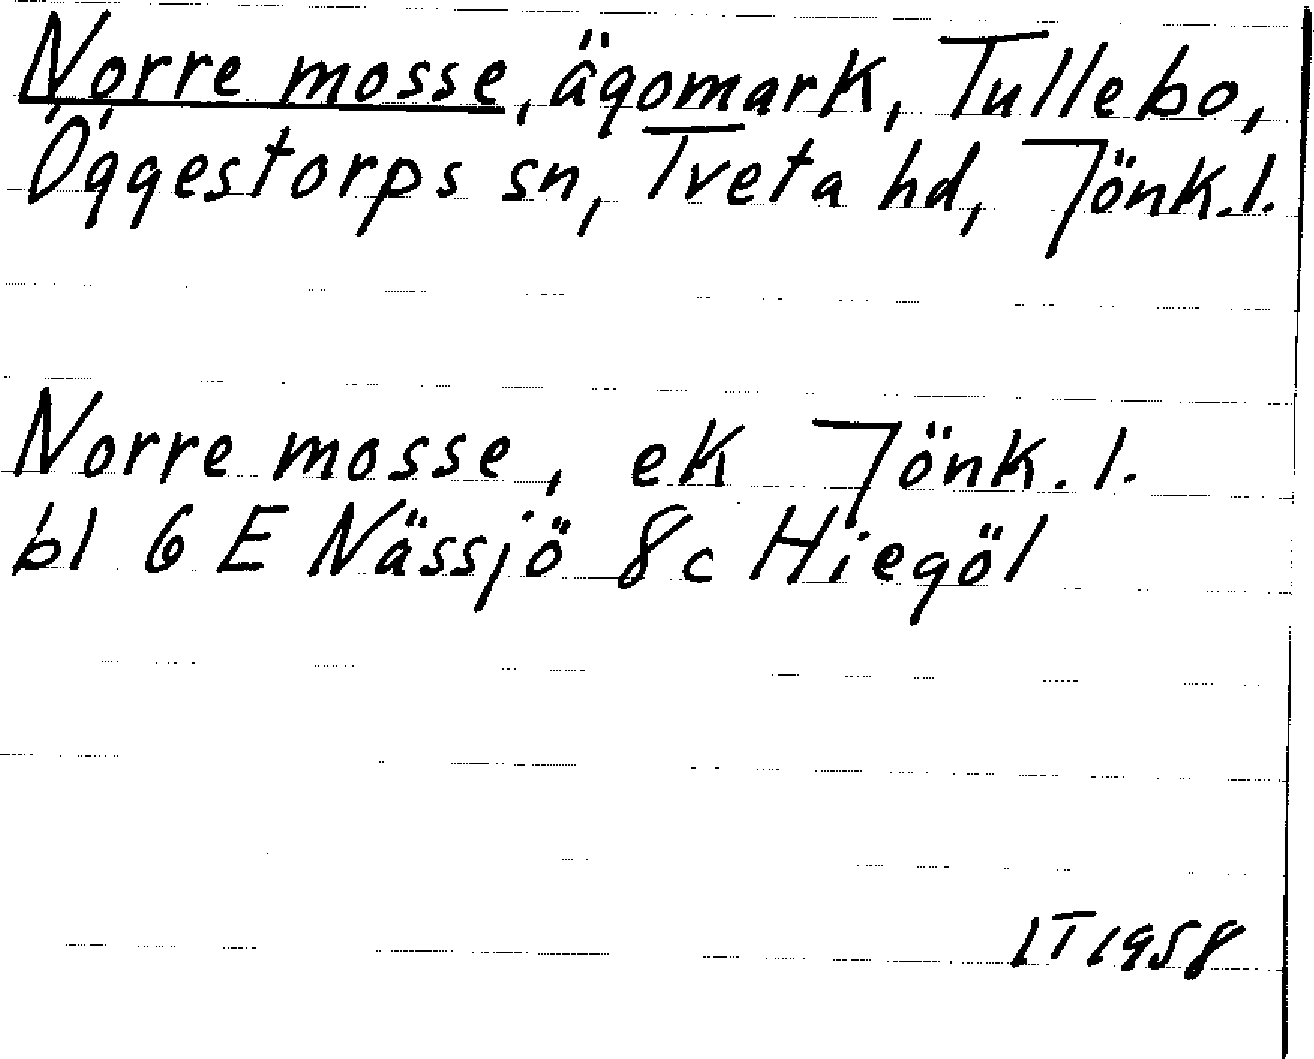 Norre mosse, ägomark, Tullebo,
Öggestorps sn, Tveta hd, Jönk.l.
Norre mosse, ek Jönk.l.
bl 6 E Nässjö 8c Hiegöl
LT 1958